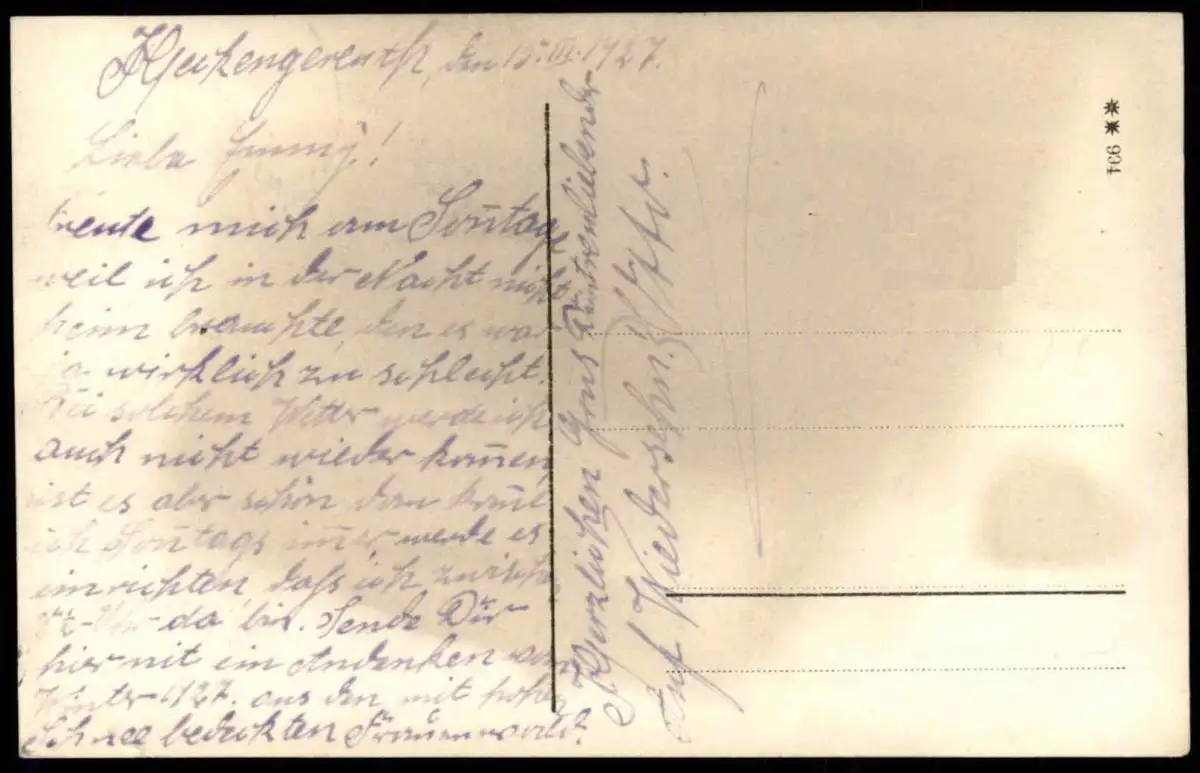 Heckengereuth, den 15. III. 1927.
Liebe Emmÿ!
Freute mich am Son̄tag
weil ich in der Nacht nicht
heim brauchte, den es war
ja wirklich zu schlecht.
Bei solchem Wetter werde ich
auch nicht wieder kom̄en,
ist es aber schön dan kom̄e
ich Son̄tags im̄er werde es
einrichten, daß ich zwischen
Uhr da bin. Sende Dir
hiermit ein Andenken vom
Winter 1927. aus den mit hohen
Schnee bedeckten Frauenwald.
Herzlichen Gruß Dein treuliebender
Auf Wiedersehn!
** 934